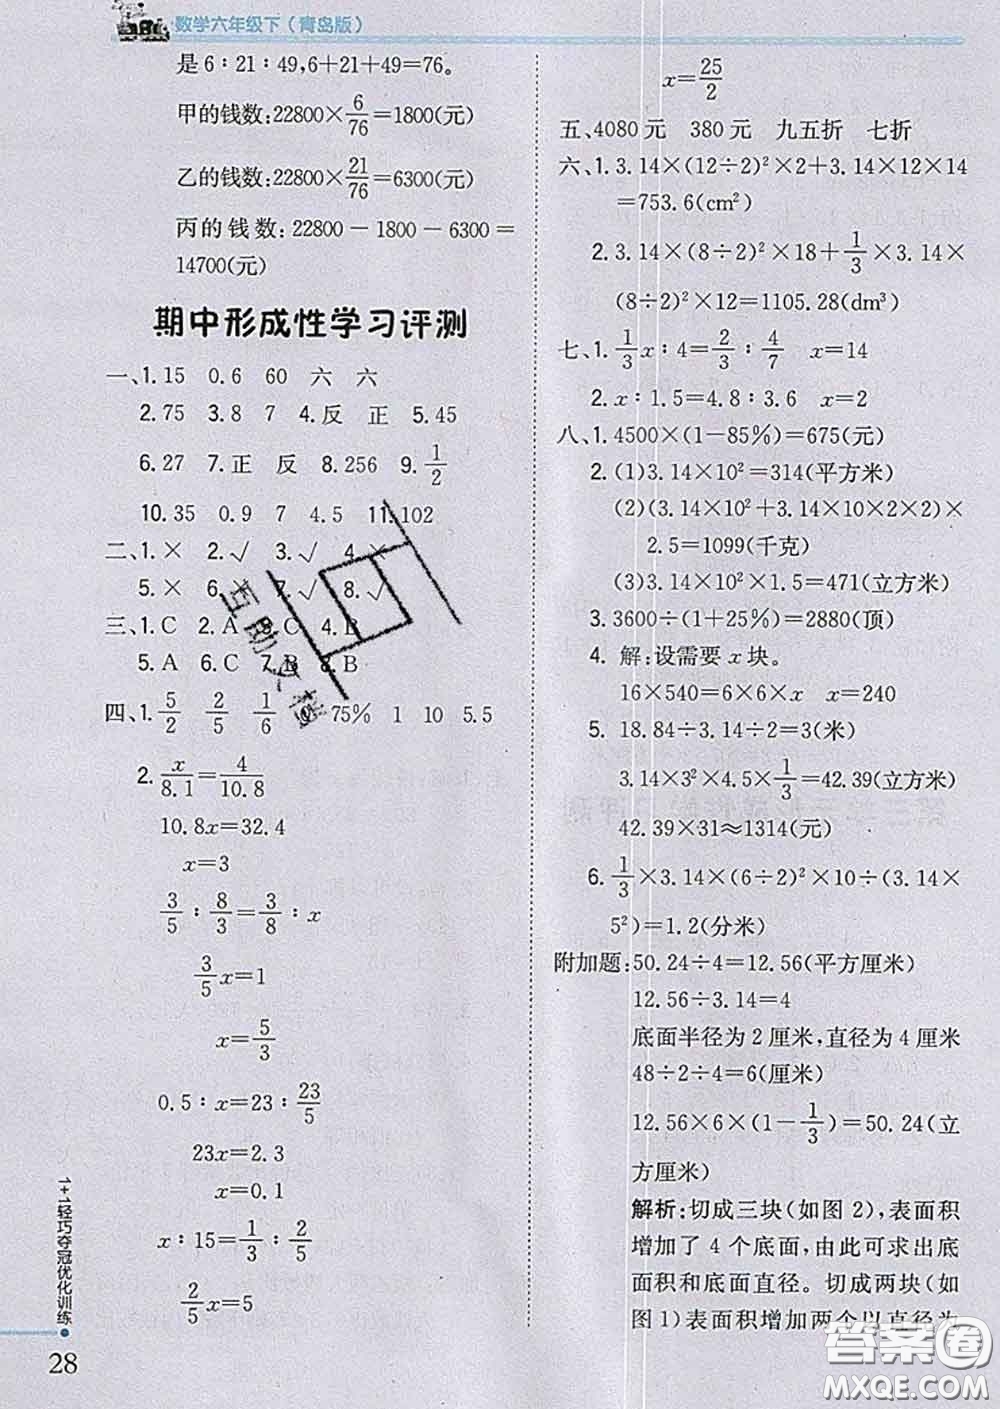 数学六年级下(青岛版)
是6∶21∶49,6+21+49=76。
甲的钱数:22800×6/76=1800(元)
乙的钱数:22800×21/76=6300(元)
丙的钱数:22800-1800-6300=
14700(元)
期中形成性学习评测
一、1.15 0.6 60 六 六
2.75 3.8 7 4.反 正 5.45
6.27 7.正 反 8.256 9.1/2
10.35 0.9 7 4.5 11.102
二、1.× 2.√ 3.√ 4.×
5.× 6.× 7.√ 8.√
三、1.C 2.A 3.C 4.B
5.A 6.C 7.B 8.B
四、1.5/2 2/5 1/6 75% 1 10 5.5
2.x/8.1=4/10.8
10.8x=32.4
x=3
3/5∶8/3=3/8∶x
3/5x=1
x=5/3
0.5∶x=23∶23/5
23x=2.3
x=0.1
x∶15=1/3∶2/5
2/5x=5
x=25/2
五、4080元 380元 九五折 七折
六、1.3.14×(12÷2)²×2+3.14×12×14
=753.6(cm²)
2.3.14×(8÷2)²×18+1/3×3.14×
(8÷2)²×12=1105.28(dm³)
七、1.1/3x∶4=2/3∶4/7 x=14
2.x∶1.5=4.8∶3.6 x=2
八、1.4500×(1-85%)=675(元)
2.(1)3.14×10²=314(平方米)
(2)(3.14×10²+3.14×10×2×2)×
2.5=1099(千克)
(3)3.14×10²×1.5=471(立方米)
3.3600÷(1+25%)=2880(顶)
4.解:设需要x块。
16×540=6×6×x x=240
5.18.84÷3.14÷2=3(米)
3.14×3²×4.5×1/3=42.39(立方米)
42.39×31≈1314(元)
6.1/3×3.14×(6÷2)²×10÷(3.14×
5²)=1.2(分米)
附加题:50.24÷4=12.56(平方厘米)
12.56÷3.14=4
底面半径为2厘米,直径为4厘米
48÷2÷4=6(厘米)
12.56×6×(1-1/3)=50.24(立
方厘米)
解析:切成三块(如图2),表面积
增加了4个底面,由此可求出底
面积和底面直径。切成两块(如
图1)表面积增加两个以直径为
1+1轻巧夺冠优化训练
28
互助文档
答案圈
MXQE.COM